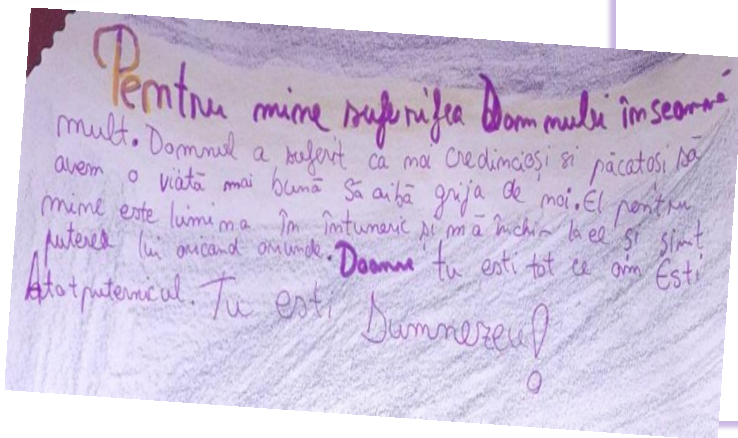 Pentru mine suferifea Domnului înseamnă
mult. Domnul a suferit ca noi credincioși si păcatosi să
avem o viată mai bună să aibă grija de noi. El pentru
mine este lumina în întuneric și mă închin la el și simt
puterea lui oricand oriunde. Doamne tu esti tot ce am Esti
Atotputernicul. Tu esti Dumnezeu!